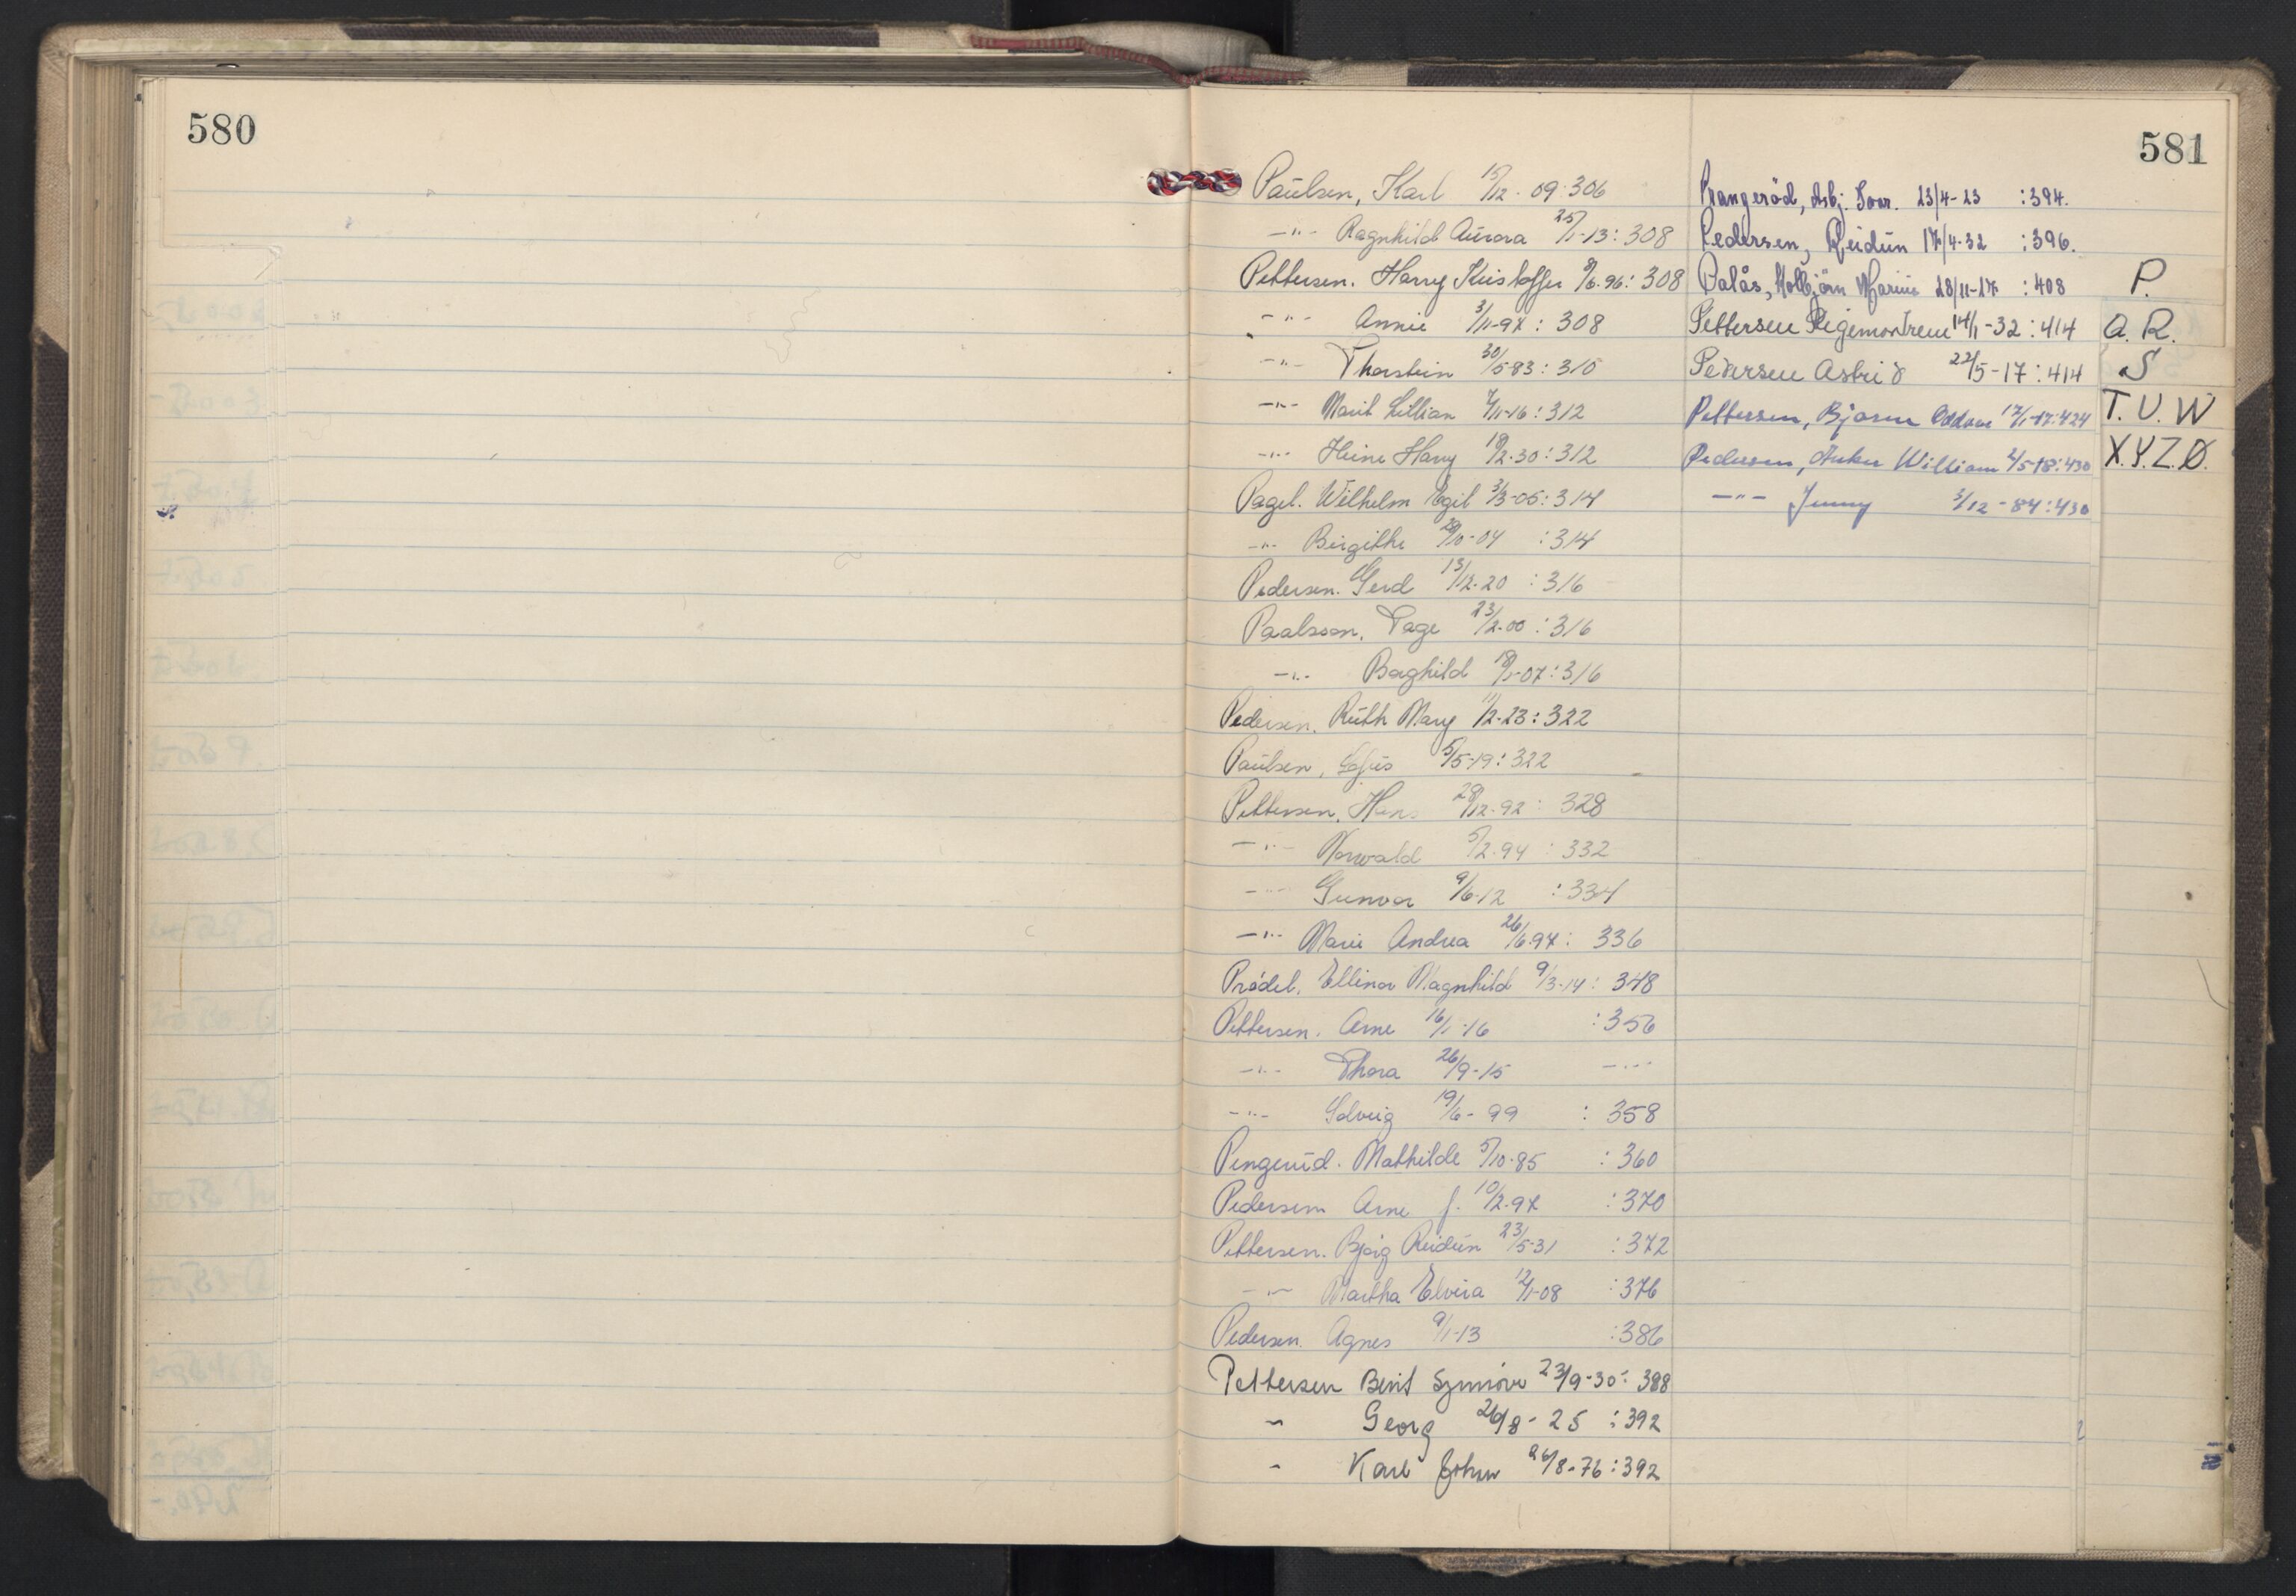 580
581
Paulsen, Karl 15/12-09:306
-"- Ragnhild Aurora 25/1-13:308
Pettersen. Harry Kristoffer 8/6.96:308
-"- Annie 3/11-97:308
-"- Thorstein 30/5-83:310
-"- Marit Lillian 7/11-16:312
-"- Heine Harry 18/2-30:312
Pagel. Wilhelm Egil 3/3-05:314
-"- Birgithe /10-04 :314
Pedersen. Gerd 13/12-20 :316
Paalsson, Tage 23/2-00:316
-"- Borghild 18/1-07:316
Pedersen. Ruth Mary 11/2-23:322
Paulsen, 5/5-19:322
Pettersen, Hans 28/12-92: 328
-"- Norvald 5/2-94: 332
-"- Gunvor 9/6-12 :334
-"- Marie Andrea 26/6.97: 336
Prádel. Ellinor Magnhild 9/3-14: 348
Pettersen. Arne 16/1-16 :356
-"- Thora 26/9-15 -"-
-"- Solveig 19/6-99 : 358
Pengerud. Mathilde 5/10-85 :360
Pedersen Arne J. 10/2-97 :370
Pettersen. Bjørg Reidun 23/5-31 :372
-"- Martha Elvira 12/1-08 :376
Pedersen. Agnes 9/1-13 :386
Pettersen Berit Synnöve 23/9-30: 388
" Georg 26/8-25 :392
" Karl Johan 26/8-76:392
Prangeröd, Asbj. Ivar. 23/4-23 :394.
Pedersen, Reidun 17/4-32 :396.
Palås, 28/11-27 :408
Pettersen Regemor Irene 14/1-32:414
Pedersen Astrid 22/5-17:414
Pettersen, Bjarne Oddvar 17/1-17:424
Pedersen, Anker William 2/5-18:430
-"- Jenny 3/12-84:430
P.
Q. R.
S
T. U. W
X.Y.Z.Ø.